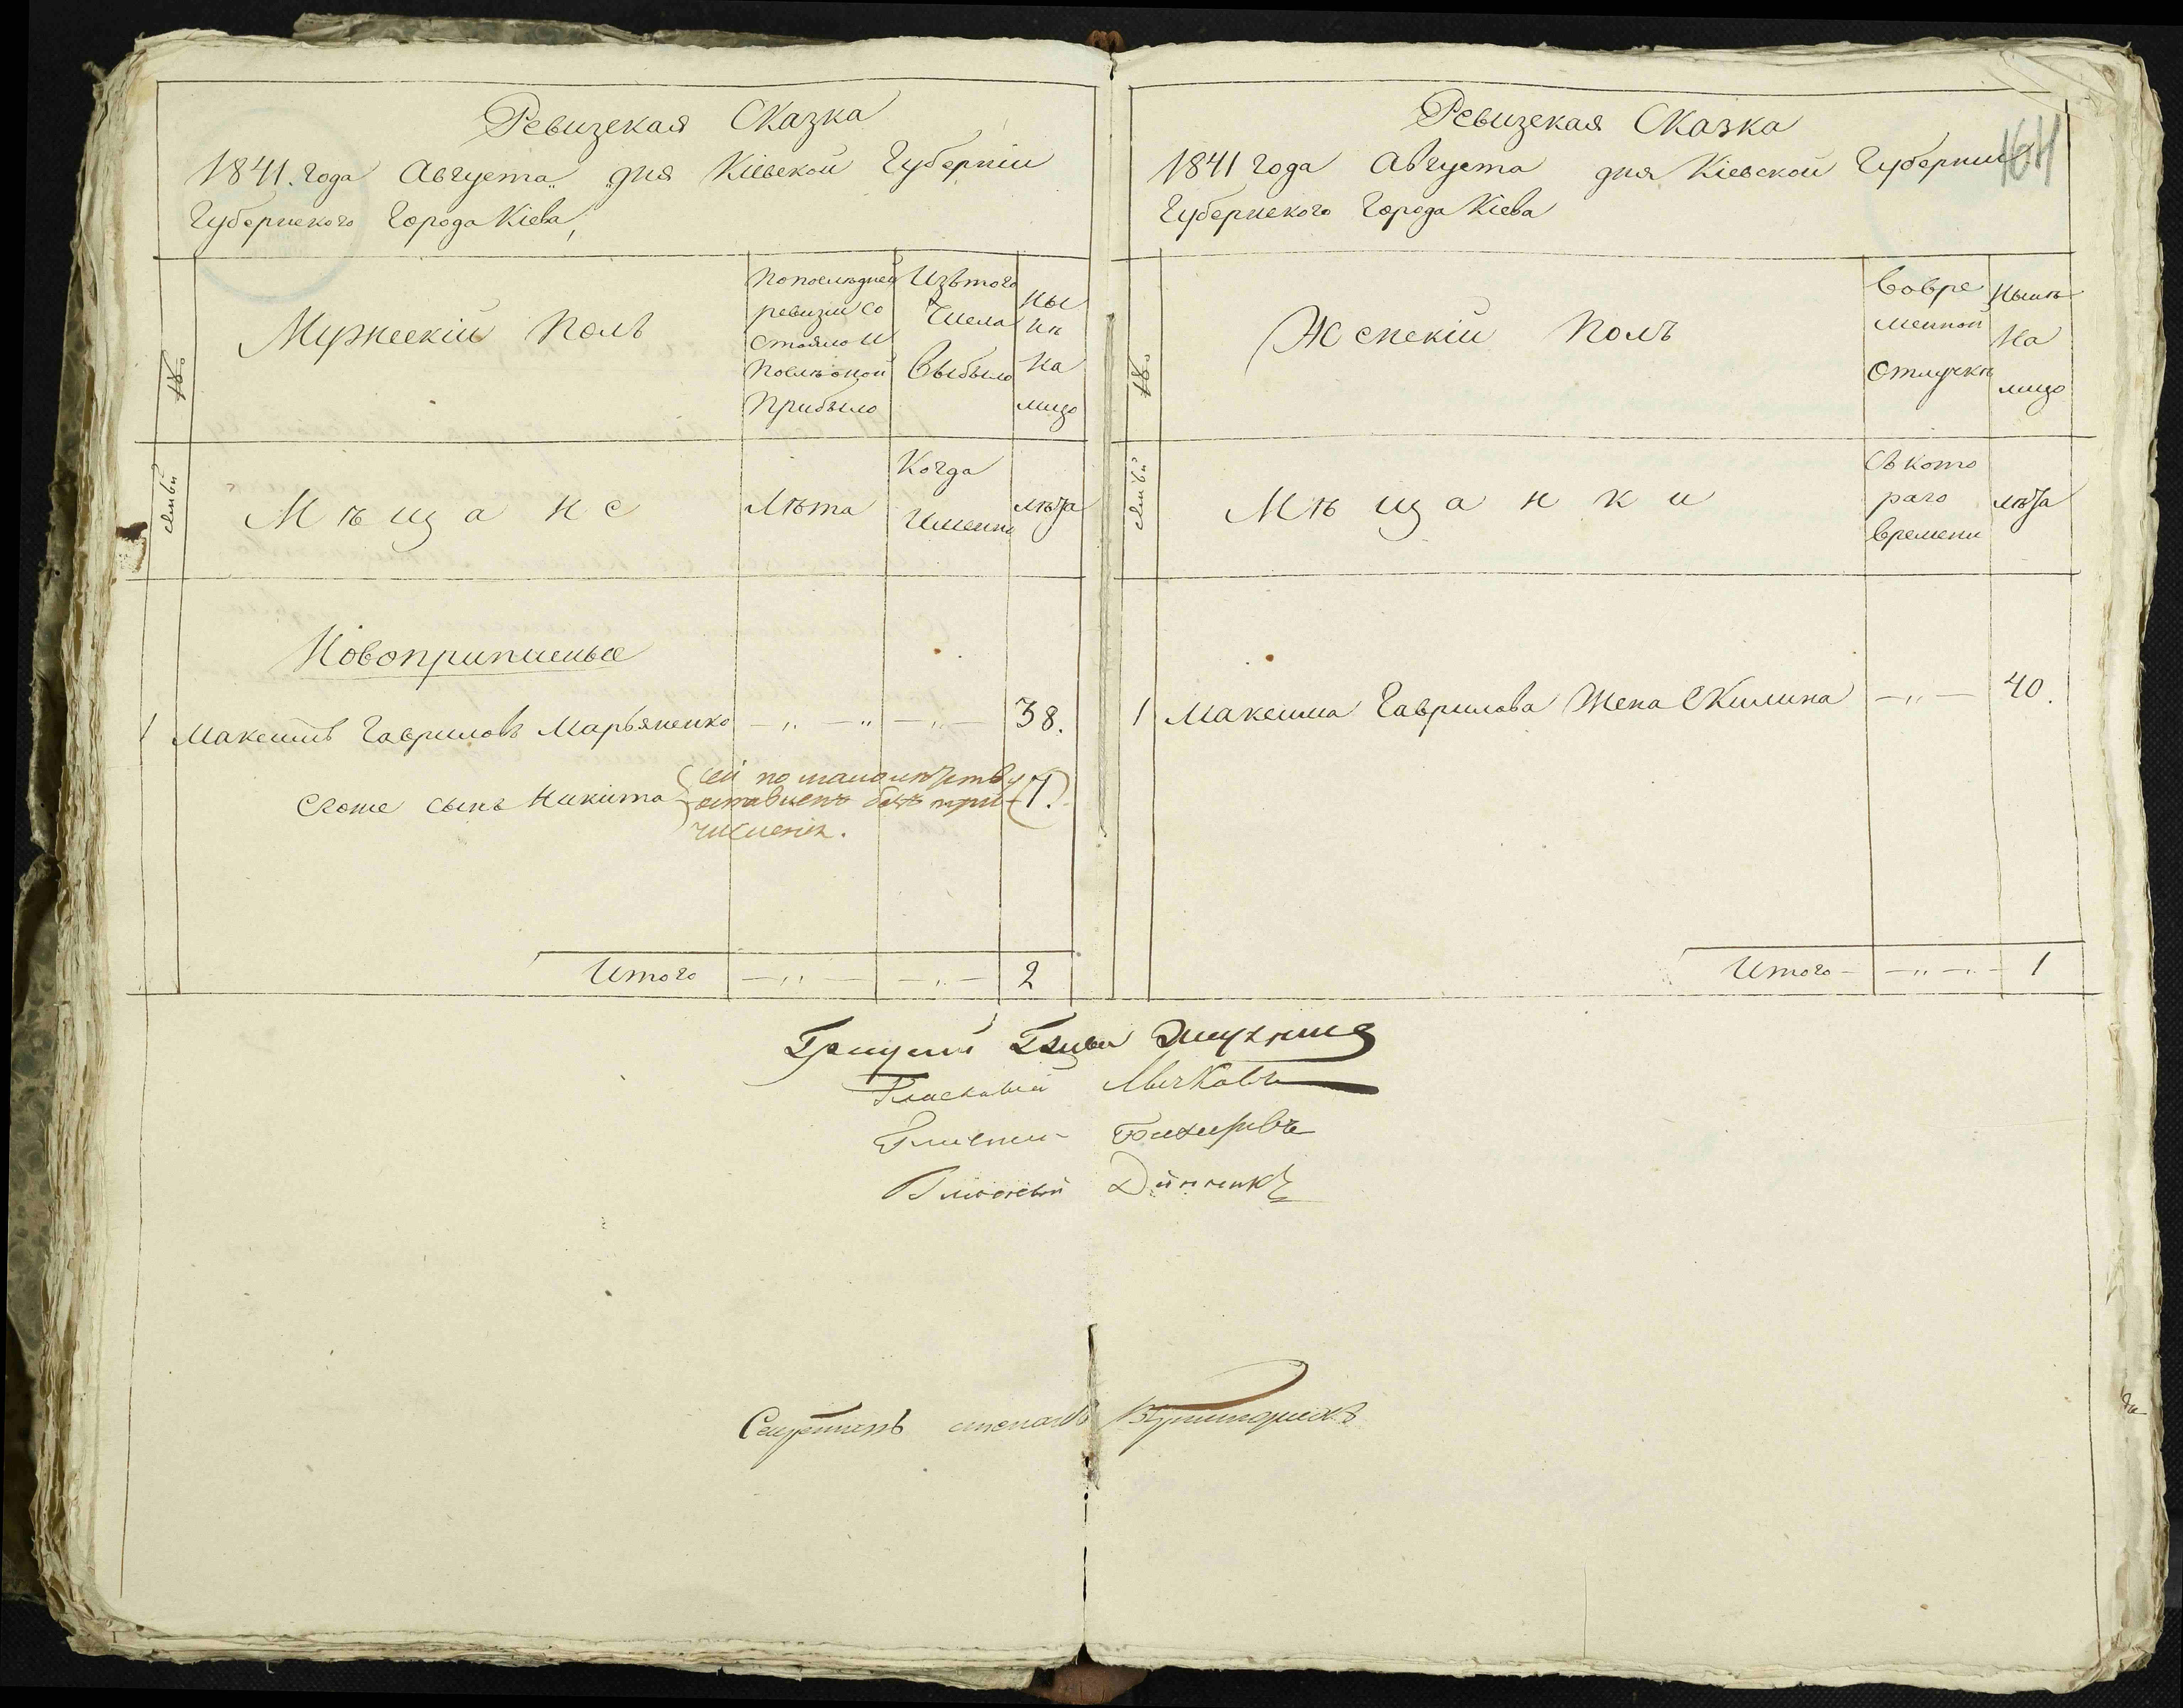 Ревизская Сказка
1841. года Августа „ „ дня Кіевской Губерніи
Губернского Города Кіева,
№
Мужескій Полъ
По последней
ревизіи со
стояло и
После оной
Прибыло
Изъ того
Числа
Выбыло
Ны
не
На
лицо
семьи
Мѣщане
Лѣта
Когда
Именно
лѣта
Новоприписные
1 Максимъ Гавриловъ Марьяненко — „ — „ — „ — 38.
Сей по малолѣтству
Егоже сынъ Никита оставленъ безъ при- (7.)
численія.
Итого — „ — — „ — 2
Ревизская Сказка
164
1841 года Августа дня Кіевской Губерніи
Губернского Города Кіева
№
Женскій Полъ
Вовре
менной
Отлучкѣ
Нынѣ
На
лицо
семьи
Мѣщанки
Съ кото
раго
времени
лѣта
1 Максима Гаврилова Жена Акилина — „ — 40.
Итого — — „ — „ — 1
Гласный
Гласный
Гласный